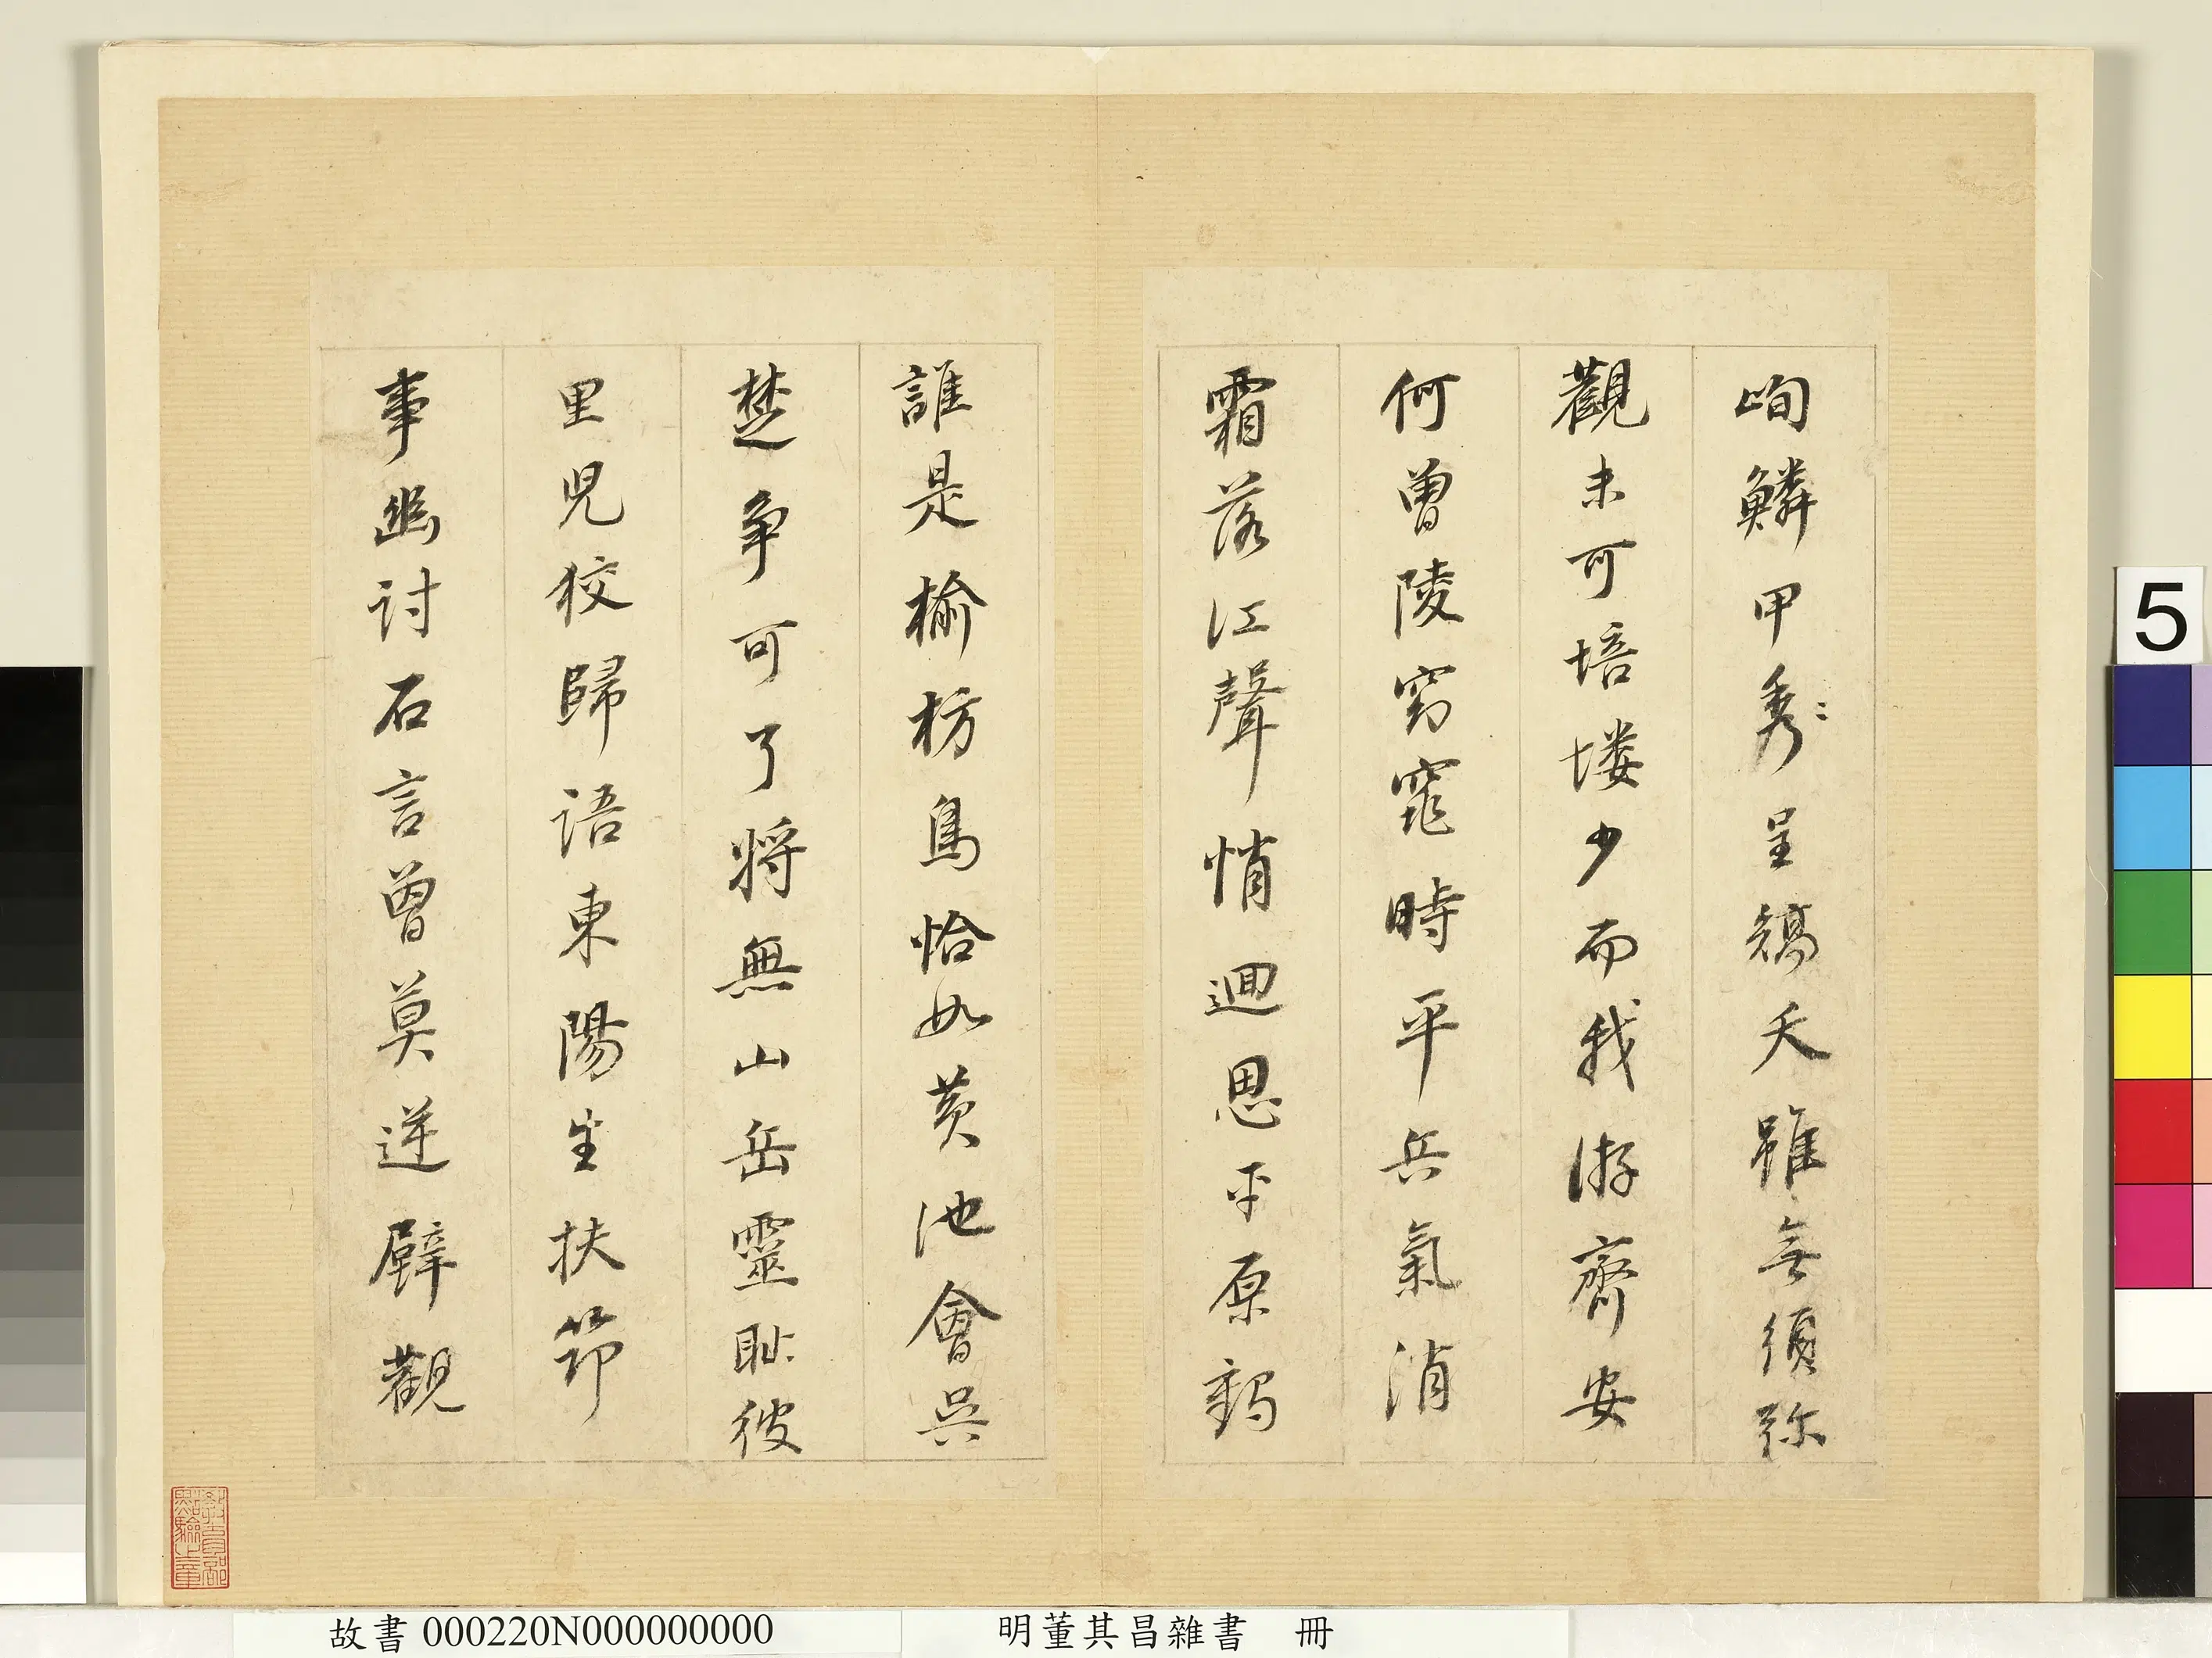 峋鱗甲秀〻呈矯夭雖無須弥
觀未可培塿少而我游齊安
何曾陵窈窕時平兵氣消
霜落江聲悄迴思平原
誰是榆枋鳥恰如黃池會吳
楚爭可了將無山岳靈耻彼
里兒狡歸語東陽生扶筇
事幽討石言曾莫逆壁觀
5
故書000220N000000000
明董其昌雜書 冊